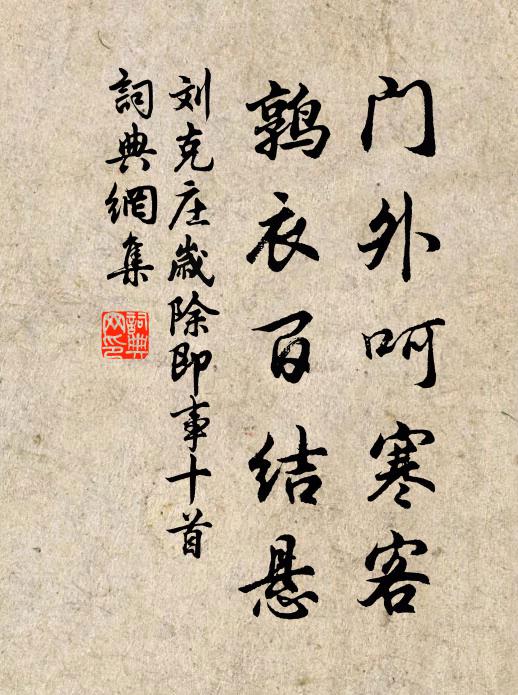 门外呵寒客
鹑衣百结悬
刘克庄歳除即事十首
詞典網集
詞典
网印